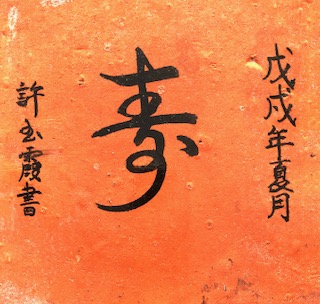 戊戌年夏月
寿
許玉霞書